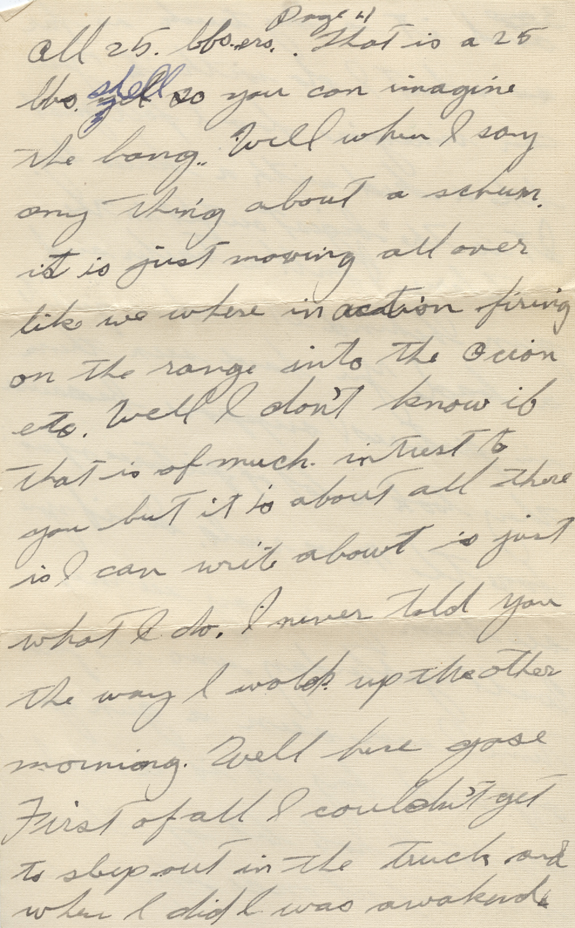 Page 4
All 25. lbs.ers. . That is a 25
lbs. shell so you can imagine
the bang. Well when I say
any thing about a schem.
it is just moving all over
like we where in acation firing
on the range into the Ocion
etc. Well I don't know if
that is of much. intrest to
you but it is about all there
is I can write about is just
what I do. I never told you
the way I up the other
morning. Well here gose
First of all I couldn't get
to sleep out in the truck and
when I did I was awakend